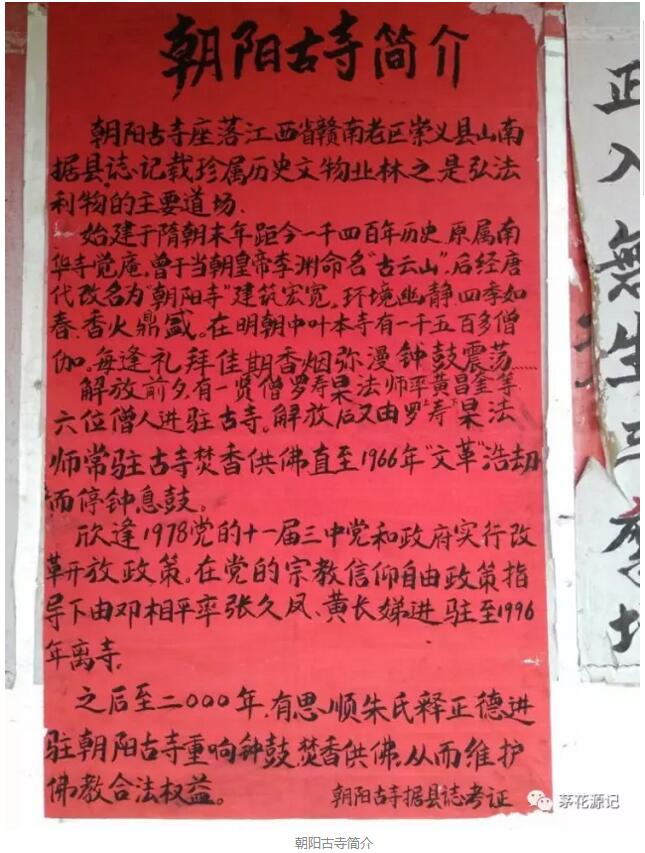 朝阳古寺简介
朝阳古寺座落江西省赣南老区崇义县山南
据县志记载珍属历史文物丛林之是弘法
利物的主要道场.
始建于隋朝末年距今一千四百年历史.原属南
华寺觉庵.曾于当朝皇帝李渊命名"古云山".后经唐
代改名为"朝阳寺"建筑宏宽.环境幽静四季如
春.香火鼎盛。在明朝中叶本寺有一千五百多僧
伽。每逢礼拜佳期香烟弥漫钟鼓震荡……
解放前夕.有一贤僧罗寿杲法师率黄昌奎等
六位僧人进驻古寺。解放后又由罗上寿下杲法
师常驻古寺焚香供佛直至1966年"文革"浩劫
而停钟息鼓。
欣逢1978党的十一届三中党和政府实行改
革开放政策。在党的宗教信仰自由政策指
导下由邓相平率张久凤、黄长娣进驻至1996
年离寺.
之后至二000年.有思顺朱氏释正德进
驻朝阳古寺重响钟鼓.焚香供佛.从而维护
佛教合法权益。
朝阳古寺据县志考证
正入无生三
茅花源记
朝阳古寺简介